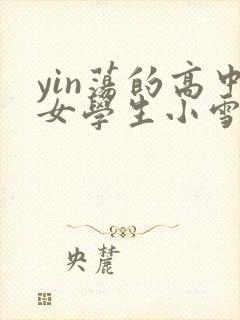 yin蕩的高中
女學生小雪
央麓